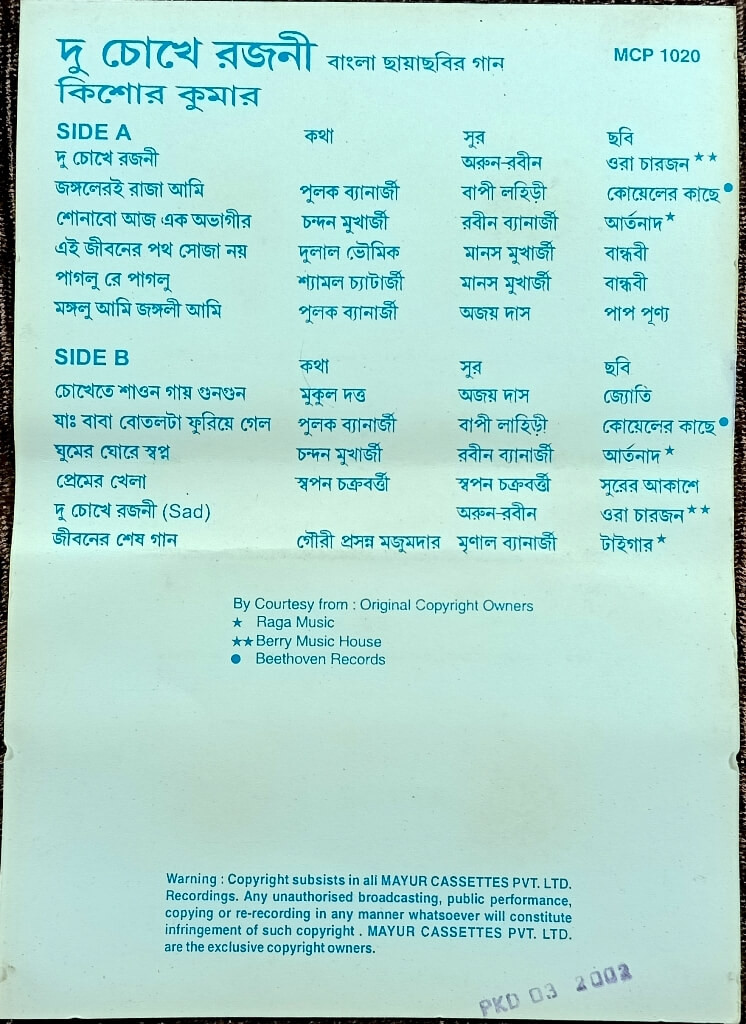 দু চোখে রজনী বাংলা ছায়াছবির গান MCP 1020
কিশোর কুমার
SIDE A কথা সুর ছবি
দু চোখে রজনী অরুন-রবীন ওরা চারজন★★
জঙ্গলেরই রাজা আমি পুলক ব্যানার্জী বাপী লহিড়ী কোয়েলের কাছে●
শোনাবো আজ এক অভাগীর চন্দন মুখার্জী রবীন ব্যানার্জী আর্তনাদ★
এই জীবনের পথ সোজা নয় দুলাল ভৌমিক মানস মুখার্জী বান্ধবী
পাগলু রে পাগলু শ্যামল চ্যাটার্জী মানস মুখার্জী বান্ধবী
মঙ্গলু আমি জঙ্গলী আমি পুলক ব্যানার্জী অজয় দাস পাপ পূণ্য
SIDE B কথা সুর ছবি
চোখেতে শাওন গায় গুনগুন মুকুল দত্ত অজয় দাস জ্যোতি
যাঃ বাবা বোতলটা ফুরিয়ে গেল পুলক ব্যানার্জী বাপী লাহিড়ী কোয়েলের কাছে●
ঘুমের ঘোরে স্বপ্ন চন্দন মুখার্জী রবীন ব্যানার্জী আর্তনাদ★
প্রেমের খেলা স্বপন চক্রবর্ত্তী স্বপন চক্রবর্ত্তী সুরের আকাশে
দু চোখে রজনী (Sad) অরুন-রবীন ওরা চারজন★★
জীবনের শেষ গান গৌরী প্রসন্ন মজুমদার মৃণাল ব্যানার্জী টাইগার★
By Courtesy from : Original Copyright Owners
★ Raga Music
★★ Berry Music House
● Beethoven Records
Warning : Copyright subsists in all MAYUR CASSETTES PVT. LTD.
Recordings. Any unauthorised broadcasting, public performance,
copying or re-recording in any manner whatsoever will constitute
infringement of such copyright . MAYUR CASSETTES PVT. LTD.
are the exclusive copyright owners.
PKD 03 2002